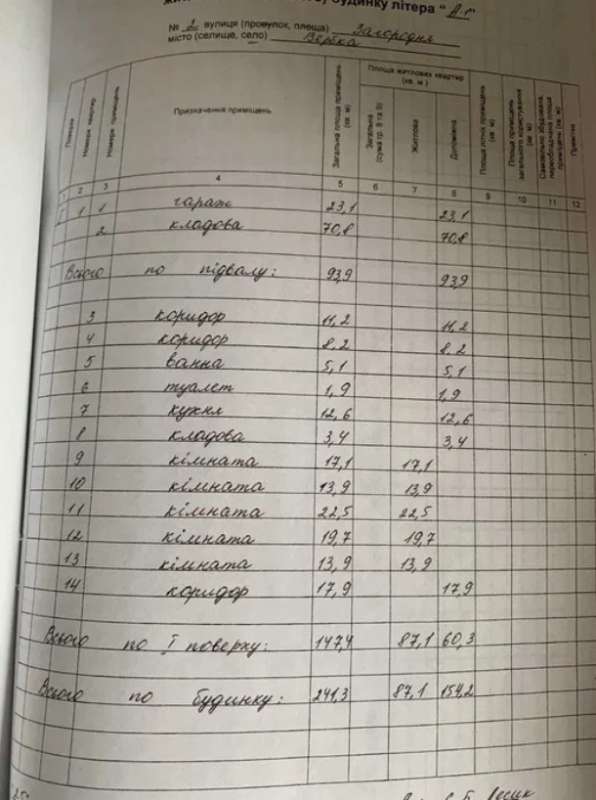 будинку літера " А-1"
№ 2 вулиця (провулок, площа) Загородня
місто (селище, село)
Поверхи
Номера квартир
Номера приміщень
Призначення приміщень
Загальна площа приміщень (кв. м)
Площа житлових квартир (кв. м)
Загальна (сума гр. 8 та 9)
Житлова
Допоміжна
Площа літніх приміщень (кв. м)
Площа приміщень загального користування (кв. м)
Самовільно збудована, переобладнана площа приміщень (кв. м)
Примітка
1 2 3 4 5 6 7 8 9 10 11 12
1 1 гараж 23,1 23,1
2 кладова 70,8 70,8
Всього по підвалу: 93,9 93,9
3 коридор 11,2 11,2
4 коридор 8,2 8,2
5 ванна 5,1 5,1
6 туалет 1,9 1,9
7 кухня 12,6 12,6
8 кладова 3,4 3,4
9 кімната 17,1 17,1
10 кімната 13,9 13,9
11 кімната 22,5 22,5
12 кімната 19,7 19,7
13 кімната 13,9 13,9
14 коридор 17,9 17,9
Всього по I поверху: 147,4 87,1 60,3
Всього по будинку: 241,3 87,1 154,2